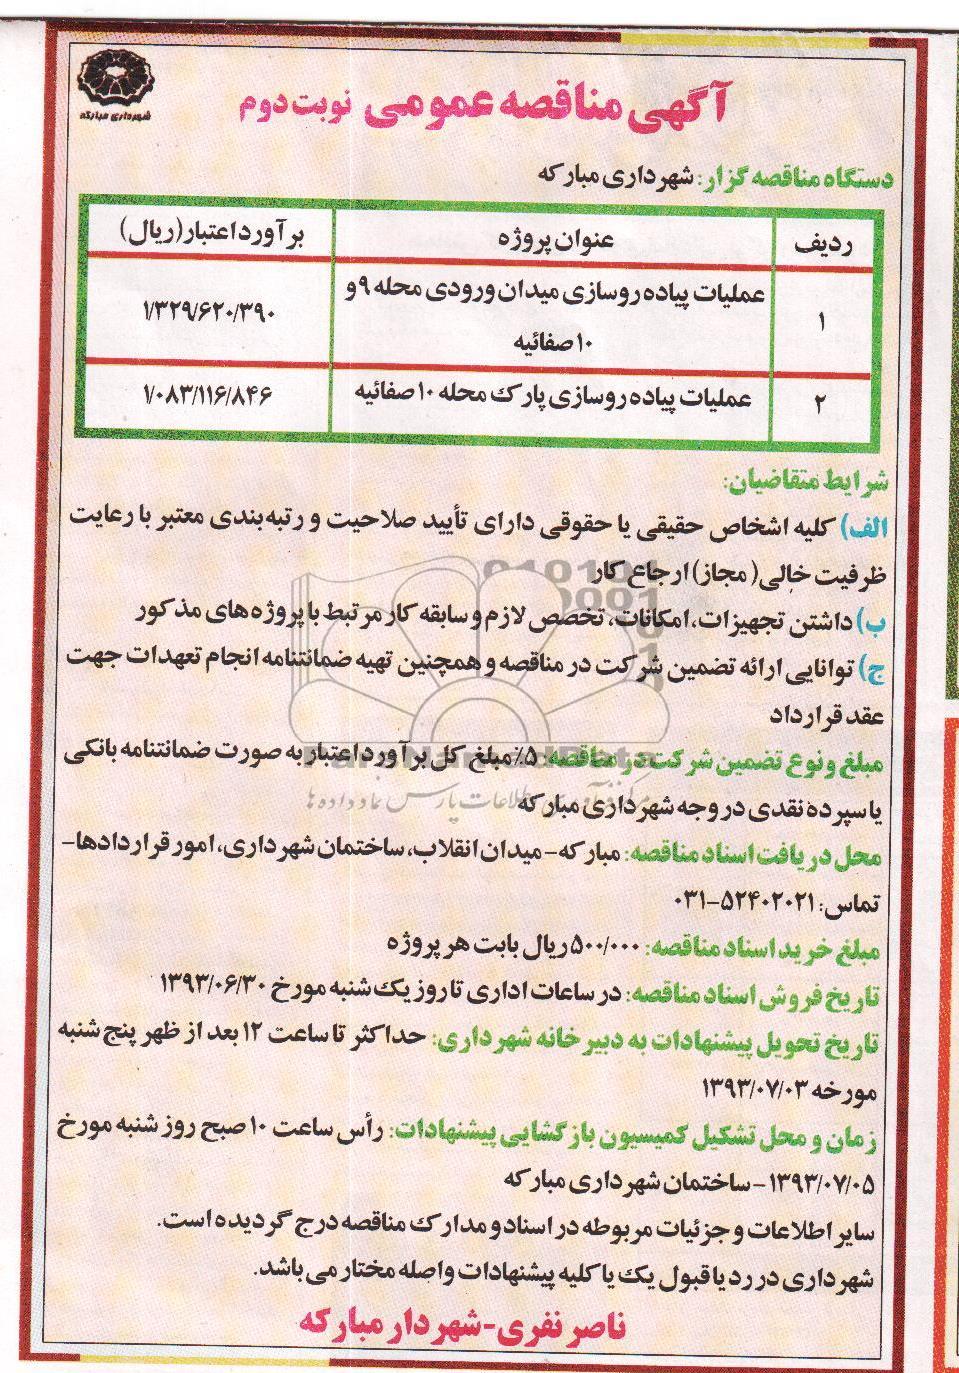 آگهی مناقصه عمومی نوبت دوم
شهرداری مبارکه
دستگاه مناقصه گزار: شهرداری مبارکه
ردیف	عنوان پروژه	برآورد اعتبار (ریال)
۱	عملیات پیاده روسازی میدان ورودی محله ۹ و	۱/۳۲۹/۶۲۰/۳۹۰
۱۰ صفائیه
۲	عملیات پیاده روسازی پارک محله ۱۰ صفائیه	۱/۰۸۳/۱۱۶/۸۴۶
شرایط متقاضیان:
الف) کلیه اشخاص حقیقی یا حقوقی دارای تأیید صلاحیت و رتبه بندی معتبر با رعایت
ظرفیت خالی (مجاز) ارجاع کار
ب) داشتن تجهیزات، امکانات، تخصص لازم و سابقه کار مرتبط با پروژه های مذکور
ج) توانایی ارائه تضمین شرکت در مناقصه و همچنین تهیه ضمانتنامه انجام تعهدات جهت
عقد قرارداد
مبلغ و نوع تضمین شرکت در مناقصه: ۵٪ مبلغ کل برآورد اعتبار به صورت ضمانتنامه بانکی
یا سپرده نقدی در وجه شهرداری مبارکه
محل دریافت اسناد مناقصه: مبارکه- میدان انقلاب، ساختمان شهرداری، امور قراردادها-
تماس: ۵۲۴۰۲۰۲۱-۰۳۱
مبلغ خرید اسناد مناقصه: ۵۰۰/۰۰۰ ریال بابت هر پروژه
تاریخ فروش اسناد مناقصه: در ساعات اداری تا روز یک شنبه مورخ ۱۳۹۳/۰۶/۳۰
تاریخ تحویل پیشنهادات به دبیرخانه شهرداری: حداکثر تا ساعت ۱۲ بعد از ظهر پنج شنبه
مورخه ۱۳۹۳/۰۷/۰۳
زمان و محل تشکیل کمیسیون بازگشایی پیشنهادات: رأس ساعت ۱۰ صبح روز شنبه مورخ
۱۳۹۳/۰۷/۰۵ - ساختمان شهرداری مبارکه
سایر اطلاعات و جزئیات مربوطه در اسناد و مدارک مناقصه درج گردیده است.
شهرداری در رد یا قبول یک یا کلیه پیشنهادات واصله مختار می باشد.
ناصر نفری - شهردار مبارکه
ParsNamadData